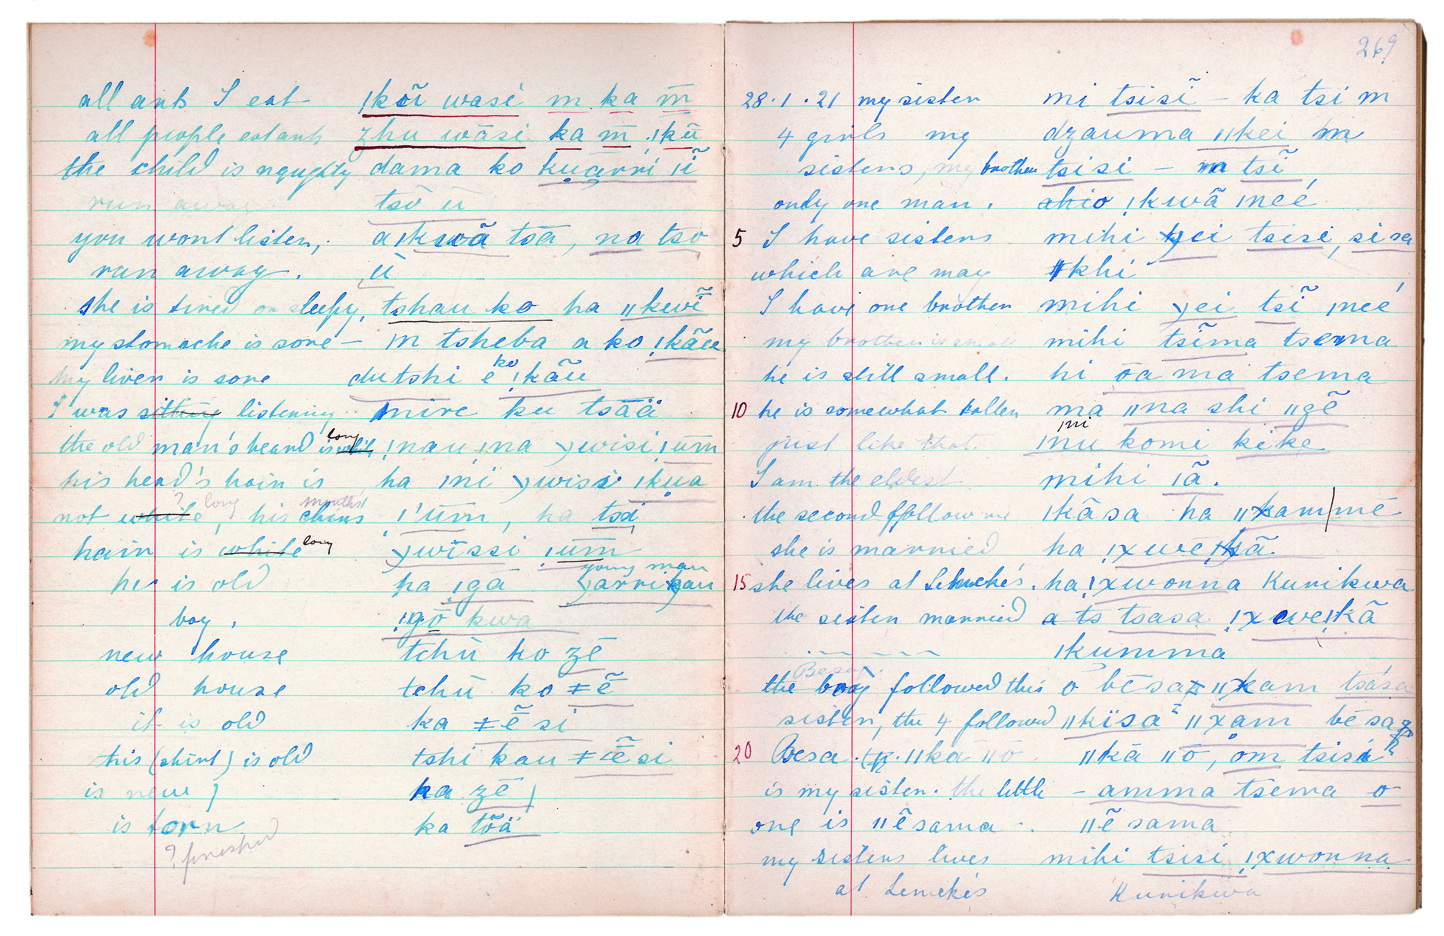 all ants I eat ǀkõĩ wasé m ka m̄
all people eat ants zhu wāsi ka m̄ ǃkū
the child is naughty dama ko
run away tsō ū
you wont listen, tsā, na tso
run away. ū
she is tired or sleepy, tshau ko ha ǁkewĩ
my stomache is sore – m tsheba a ko ǃkãũ
my liver is sore dutshi e ko ǃkãu
I was sitting listening mire ku tsãä
the old man's beard is long ǃnau ǃna wisi ǃūm
his head's hair is ha ǀni wisi ǀkua
not white ? long, his chins mouth's ǀ'ūm, ha tsi
hair is white long wissi ǃūm
he is old ha ǃga young man
boy. ǃgō kwa
new house tchū ko zē
old house tchū ko ǂẽ
it is old ka ǂẽ si
his (shirt) is old tshi kau ǂẽ si
is new ) ka zē )
is torn ka tõä
? finished
269
28.1.21 my sister mi tsisĩ – ka tsi m
4 girls my dzauma ǁkei m
sisters, my brother tsisi – m tsĩ
only one man. ǃkwã ǀneé
5 I have sisters mihi ɣei tsisi, sisa
which are may ǁkhi
I have one brother mihi ɣei tsĩ ǀneé
my brother is small mihi tsĩma tsema
he is still small. hi ōa ma tsema
10 he is somewhat taller ma ǁna shi ǁgẽ
just like that. ǀnu ǀni komi kike
I am the eldest mihi ǀã.
the second follow me ǀkãsa ha ǁxam/mē
she is married ha ǃxweǀkã.
15 she lives at Lemekès. ha ǃxwonna Kunikwa
the sister married a ts tsasa ǃxweǀkã
ǀkumma
Besa
the boy followed this o bēsa ǁxam tsása
sister, the 4 followed ǁkïsa ǁxam bē sa
20 Besa. ǁka ǁō. ǁkã ǁō, om tsisi
is my sister. the little – amma tsema o
one is ǁẽsama. ǁẽ sama
my sisters lives mihi tsisi ǃxwonna
at Lemekès Kunikwa